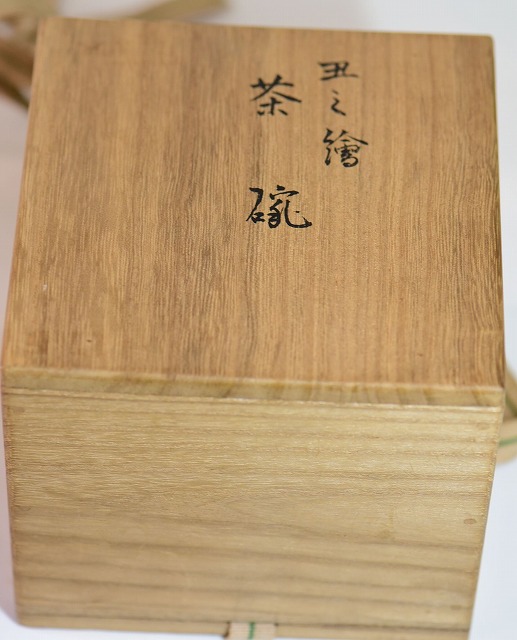 丑之繪
茶碗